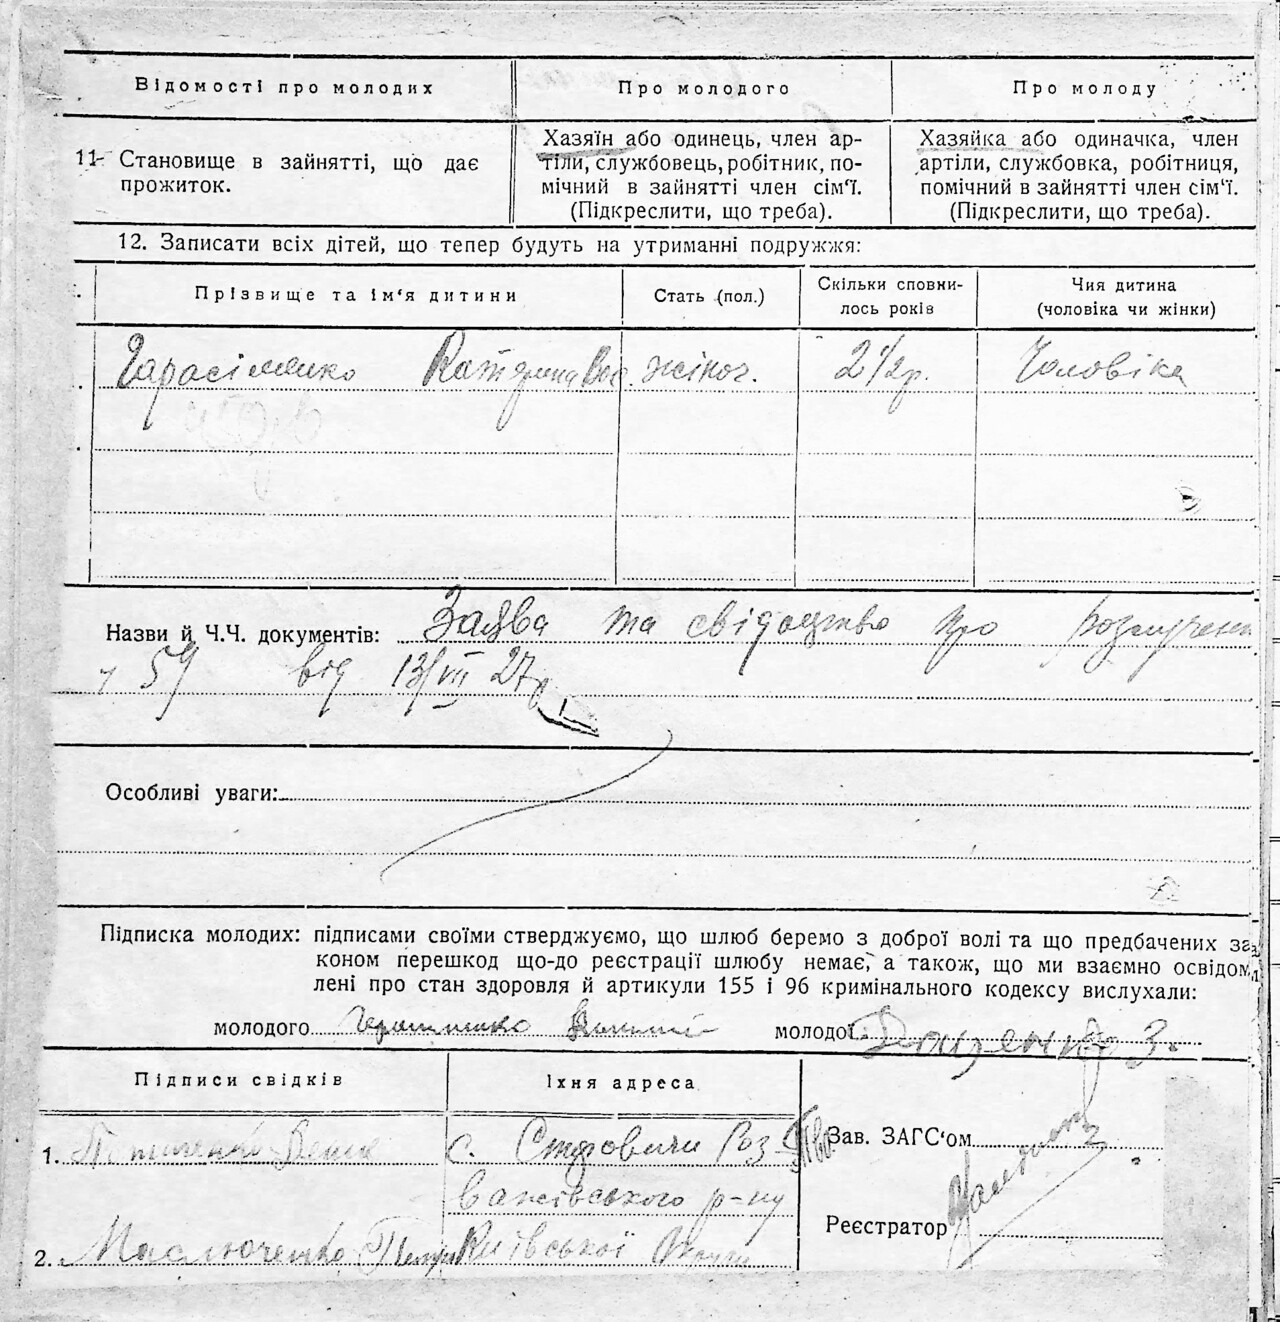 Відомості про молодих Про молодого Про молоду
11. Становище в зайнятті, що дає прожиток.
Хазяїн або одинець, член ар-
тіли, службовець, робітник, по-
мічний в зайнятті член сім'ї.
(Підкреслити, що треба).
Хазяйка або одиначка, член
артіли, службовка, робітниця,
помічний в зайнятті член сім'ї.
(Підкреслити, що треба).
12. Записати всіх дітей, що тепер будуть на утриманні подружжя:
Прізвище та ім'я дитини Стать (пол.) Скільки сповни-
лось років Чия дитина
(чоловіка чи жінки)
Гарасіменко Катерина Вас. жіноч. 2 1/2 р. Чоловіка
Назви й Ч.Ч. документів: Заява та свідоцтво про розлучен
59 від 13/VII 27р
Особливі уваги:
Підписка молодих: підписами своїми стверджуємо, що шлюб беремо з доброї волі та що предбачених за
коном перешкод що-до реєстрації шлюбу немає, а також, що ми взаємно освідом
лені про стан здоровля й артикули 155 і 96 кримінального кодексу вислухали:
молодого молодої З.
Підписи свідків Їхня адреса
1. с. Роз-
важівського р-ну
2. Маслюченко Київської Округи
Зав. ЗАГС'ом
Реєстратор